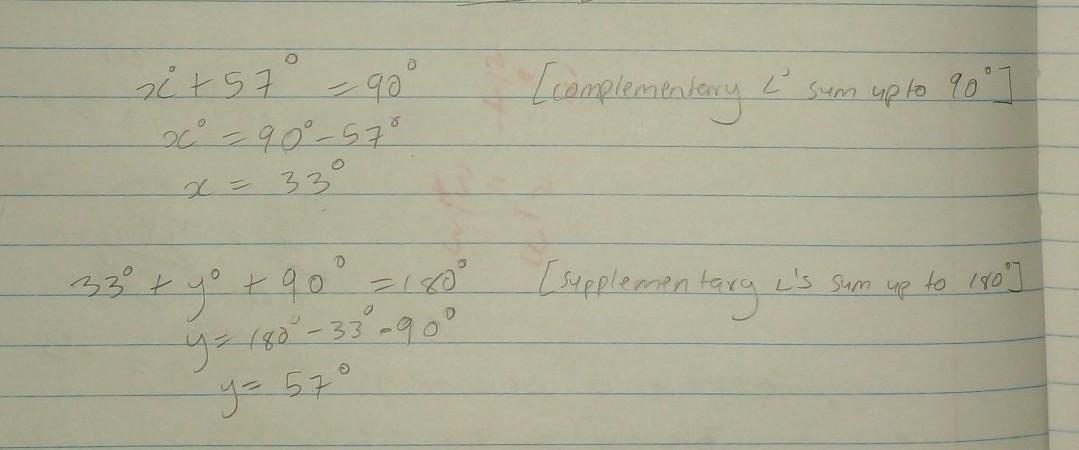 x° + 57° = 90° [complementary ∠'s sum up to 90°]
x° = 90° - 57°
x = 33°
33° + y° + 90° = 180° [supplementary ∠'s sum up to 180°]
y = 180° - 33° - 90°
y = 57°